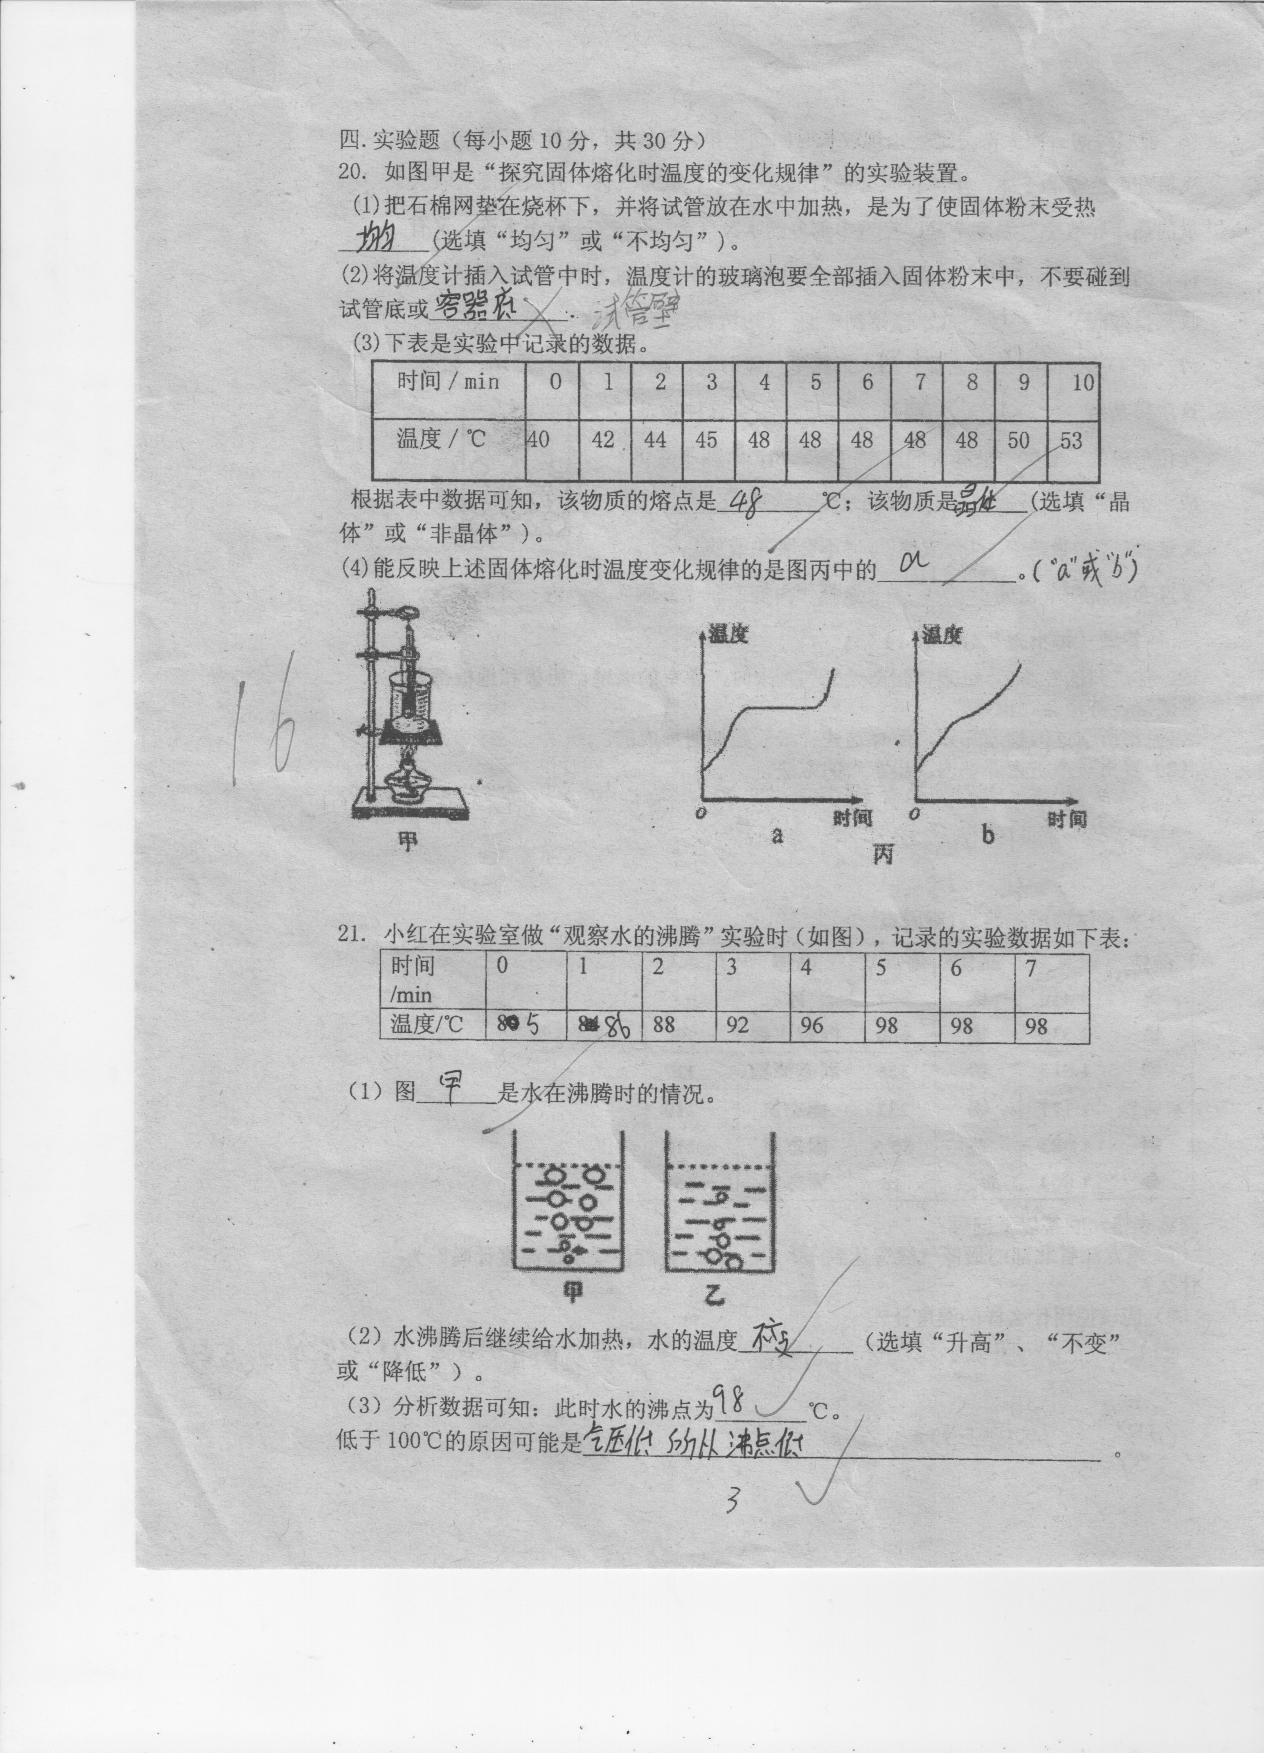 四.实验题（每小题10分，共30分）
20. 如图甲是“探究固体熔化时温度的变化规律”的实验装置。
(1)把石棉网垫在烧杯下，并将试管放在水中加热，是为了使固体粉末受热
均匀(选填“均匀”或“不均匀”)。
(2)将温度计插入试管中时，温度计的玻璃泡要全部插入固体粉末中，不要碰到
试管底或容器底. 试管壁
(3)下表是实验中记录的数据。
时间/min 0 1 2 3 4 5 6 7 8 9 10
温度/℃ 40 42 44 45 48 48 48 48 48 50 53
根据表中数据可知，该物质的熔点是48℃；该物质是晶体(选填“晶
体”或“非晶体”)。
(4)能反映上述固体熔化时温度变化规律的是图丙中的a。(“a”或“b”)
16
温度 温度
0 时间 0 时间
甲 a b
丙
21. 小红在实验室做“观察水的沸腾”实验时(如图)，记录的实验数据如下表：
时间 0 1 2 3 4 5 6 7
/min
温度/℃ 85 86 88 92 96 98 98 98
（1）图甲是水在沸腾时的情况。
甲 乙
（2）水沸腾后继续给水加热，水的温度不变（选填“升高”、“不变”
或“降低”）。
（3）分析数据可知：此时水的沸点为98℃。
低于100℃的原因可能是气压低 所以 沸点低。
3